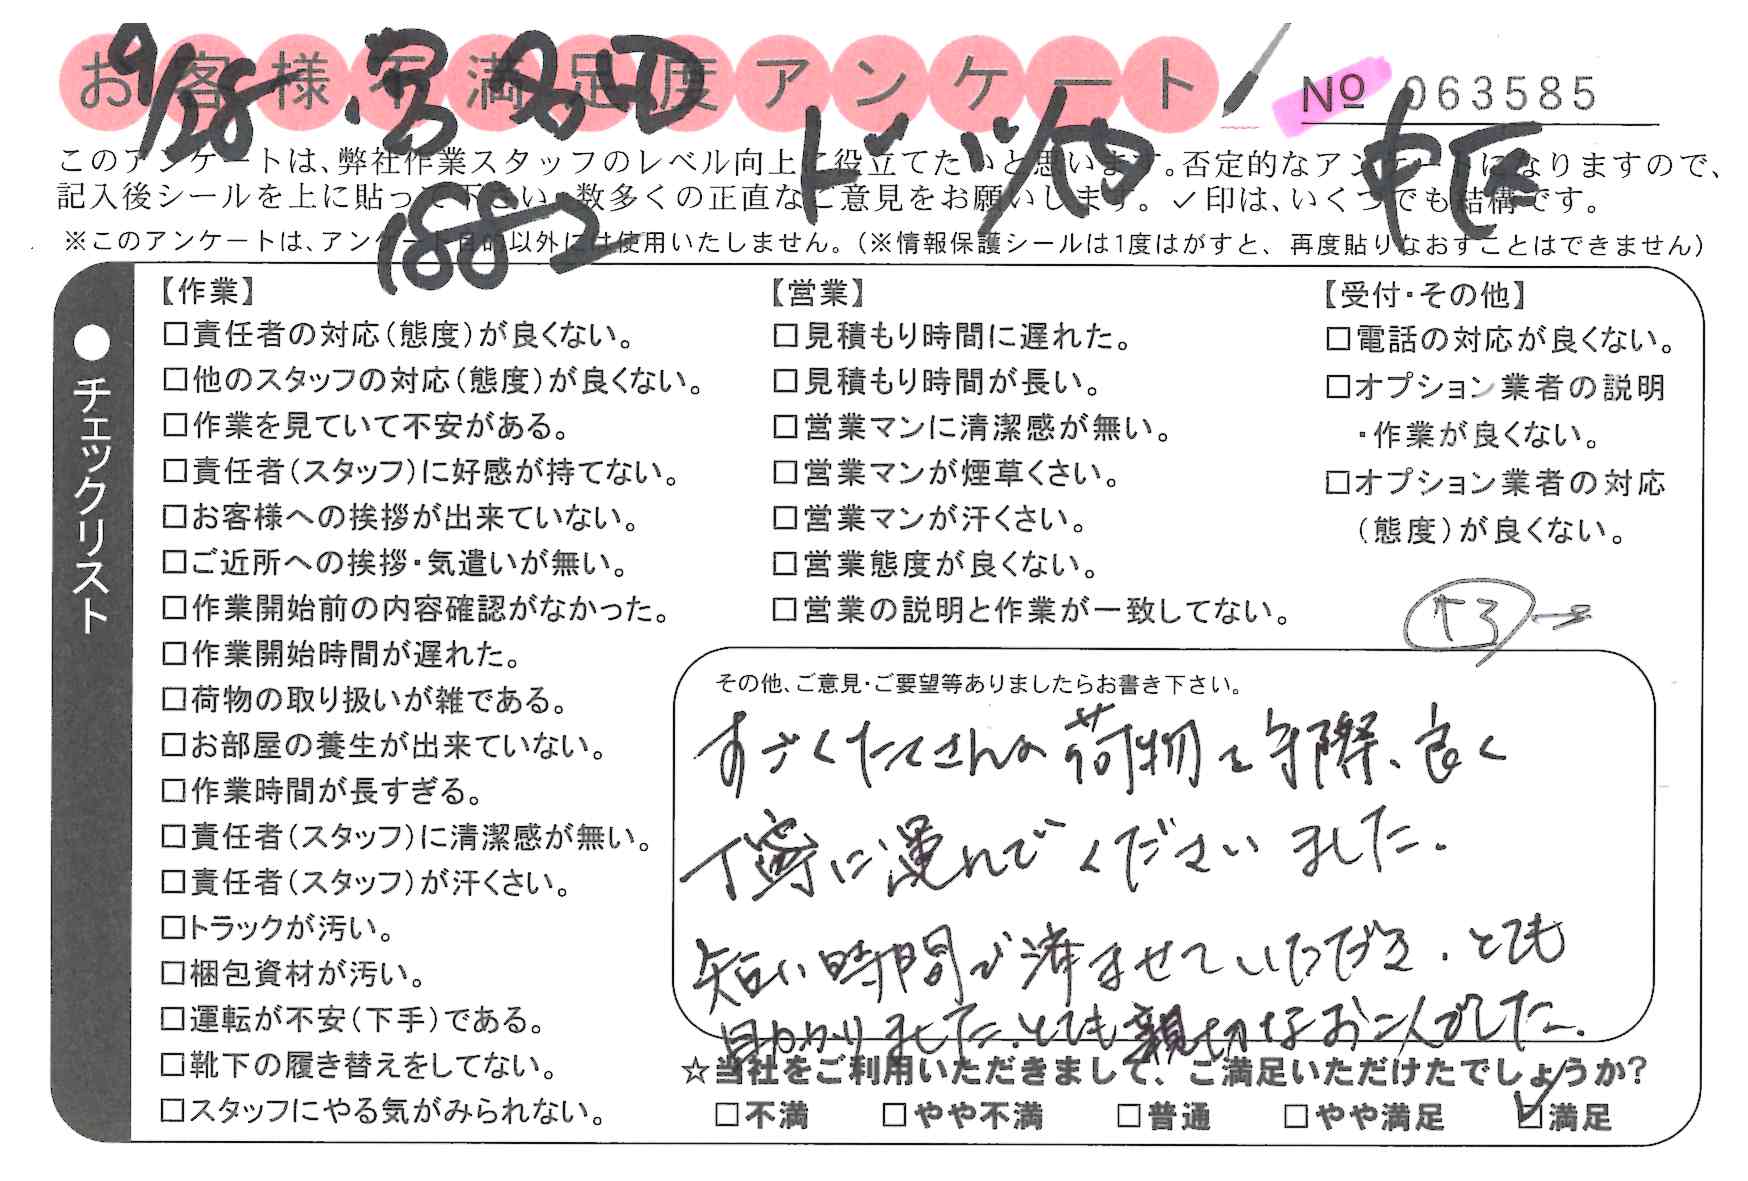 お客様不満足度アンケート
№ 063585
9/28
1882
このアンケートは、弊社作業スタッフのレベル向上に役立てたいと思います。否定的なアンケートになりますので、
記入後シールを上に貼って下さい。数多くの正直なご意見をお願いします。✓印は、いくつでも結構です。
※このアンケートは、アンケート目的以外には使用いたしません。（※情報保護シールは1度はがすと、再度貼りなおすことはできません）
●チェックリスト
【作業】
□責任者の対応（態度）が良くない。
□他のスタッフの対応（態度）が良くない。
□作業を見ていて不安がある。
□責任者（スタッフ）に好感が持てない。
□お客様への挨拶が出来ていない。
□ご近所への挨拶・気遣いが無い。
□作業開始前の内容確認がなかった。
□作業開始時間が遅れた。
□荷物の取り扱いが雑である。
□お部屋の養生が出来ていない。
□作業時間が長すぎる。
□責任者（スタッフ）に清潔感が無い。
□責任者（スタッフ）が汗くさい。
□トラックが汚い。
□梱包資材が汚い。
□運転が不安（下手）である。
□靴下の履き替えをしてない。
□スタッフにやる気がみられない。
【営業】
□見積もり時間に遅れた。
□見積もり時間が長い。
□営業マンに清潔感が無い。
□営業マンが煙草くさい。
□営業マンが汗くさい。
□営業態度が良くない。
□営業の説明と作業が一致してない。
【受付・その他】
□電話の対応が良くない。
□オプション業者の説明
・作業が良くない。
□オプション業者の対応
（態度）が良くない。
その他、ご意見・ご要望等ありましたらお書き下さい。
すごくたくさんの荷物を手際、良く
丁寧に運んでくださいました。
短い時間で済ませていただき、とても
助かりました。とても親切なお二人でした。
☆当社をご利用いただきまして、ご満足いただけたでしょうか？
□不満 □やや不満 □普通 □やや満足 ☑満足